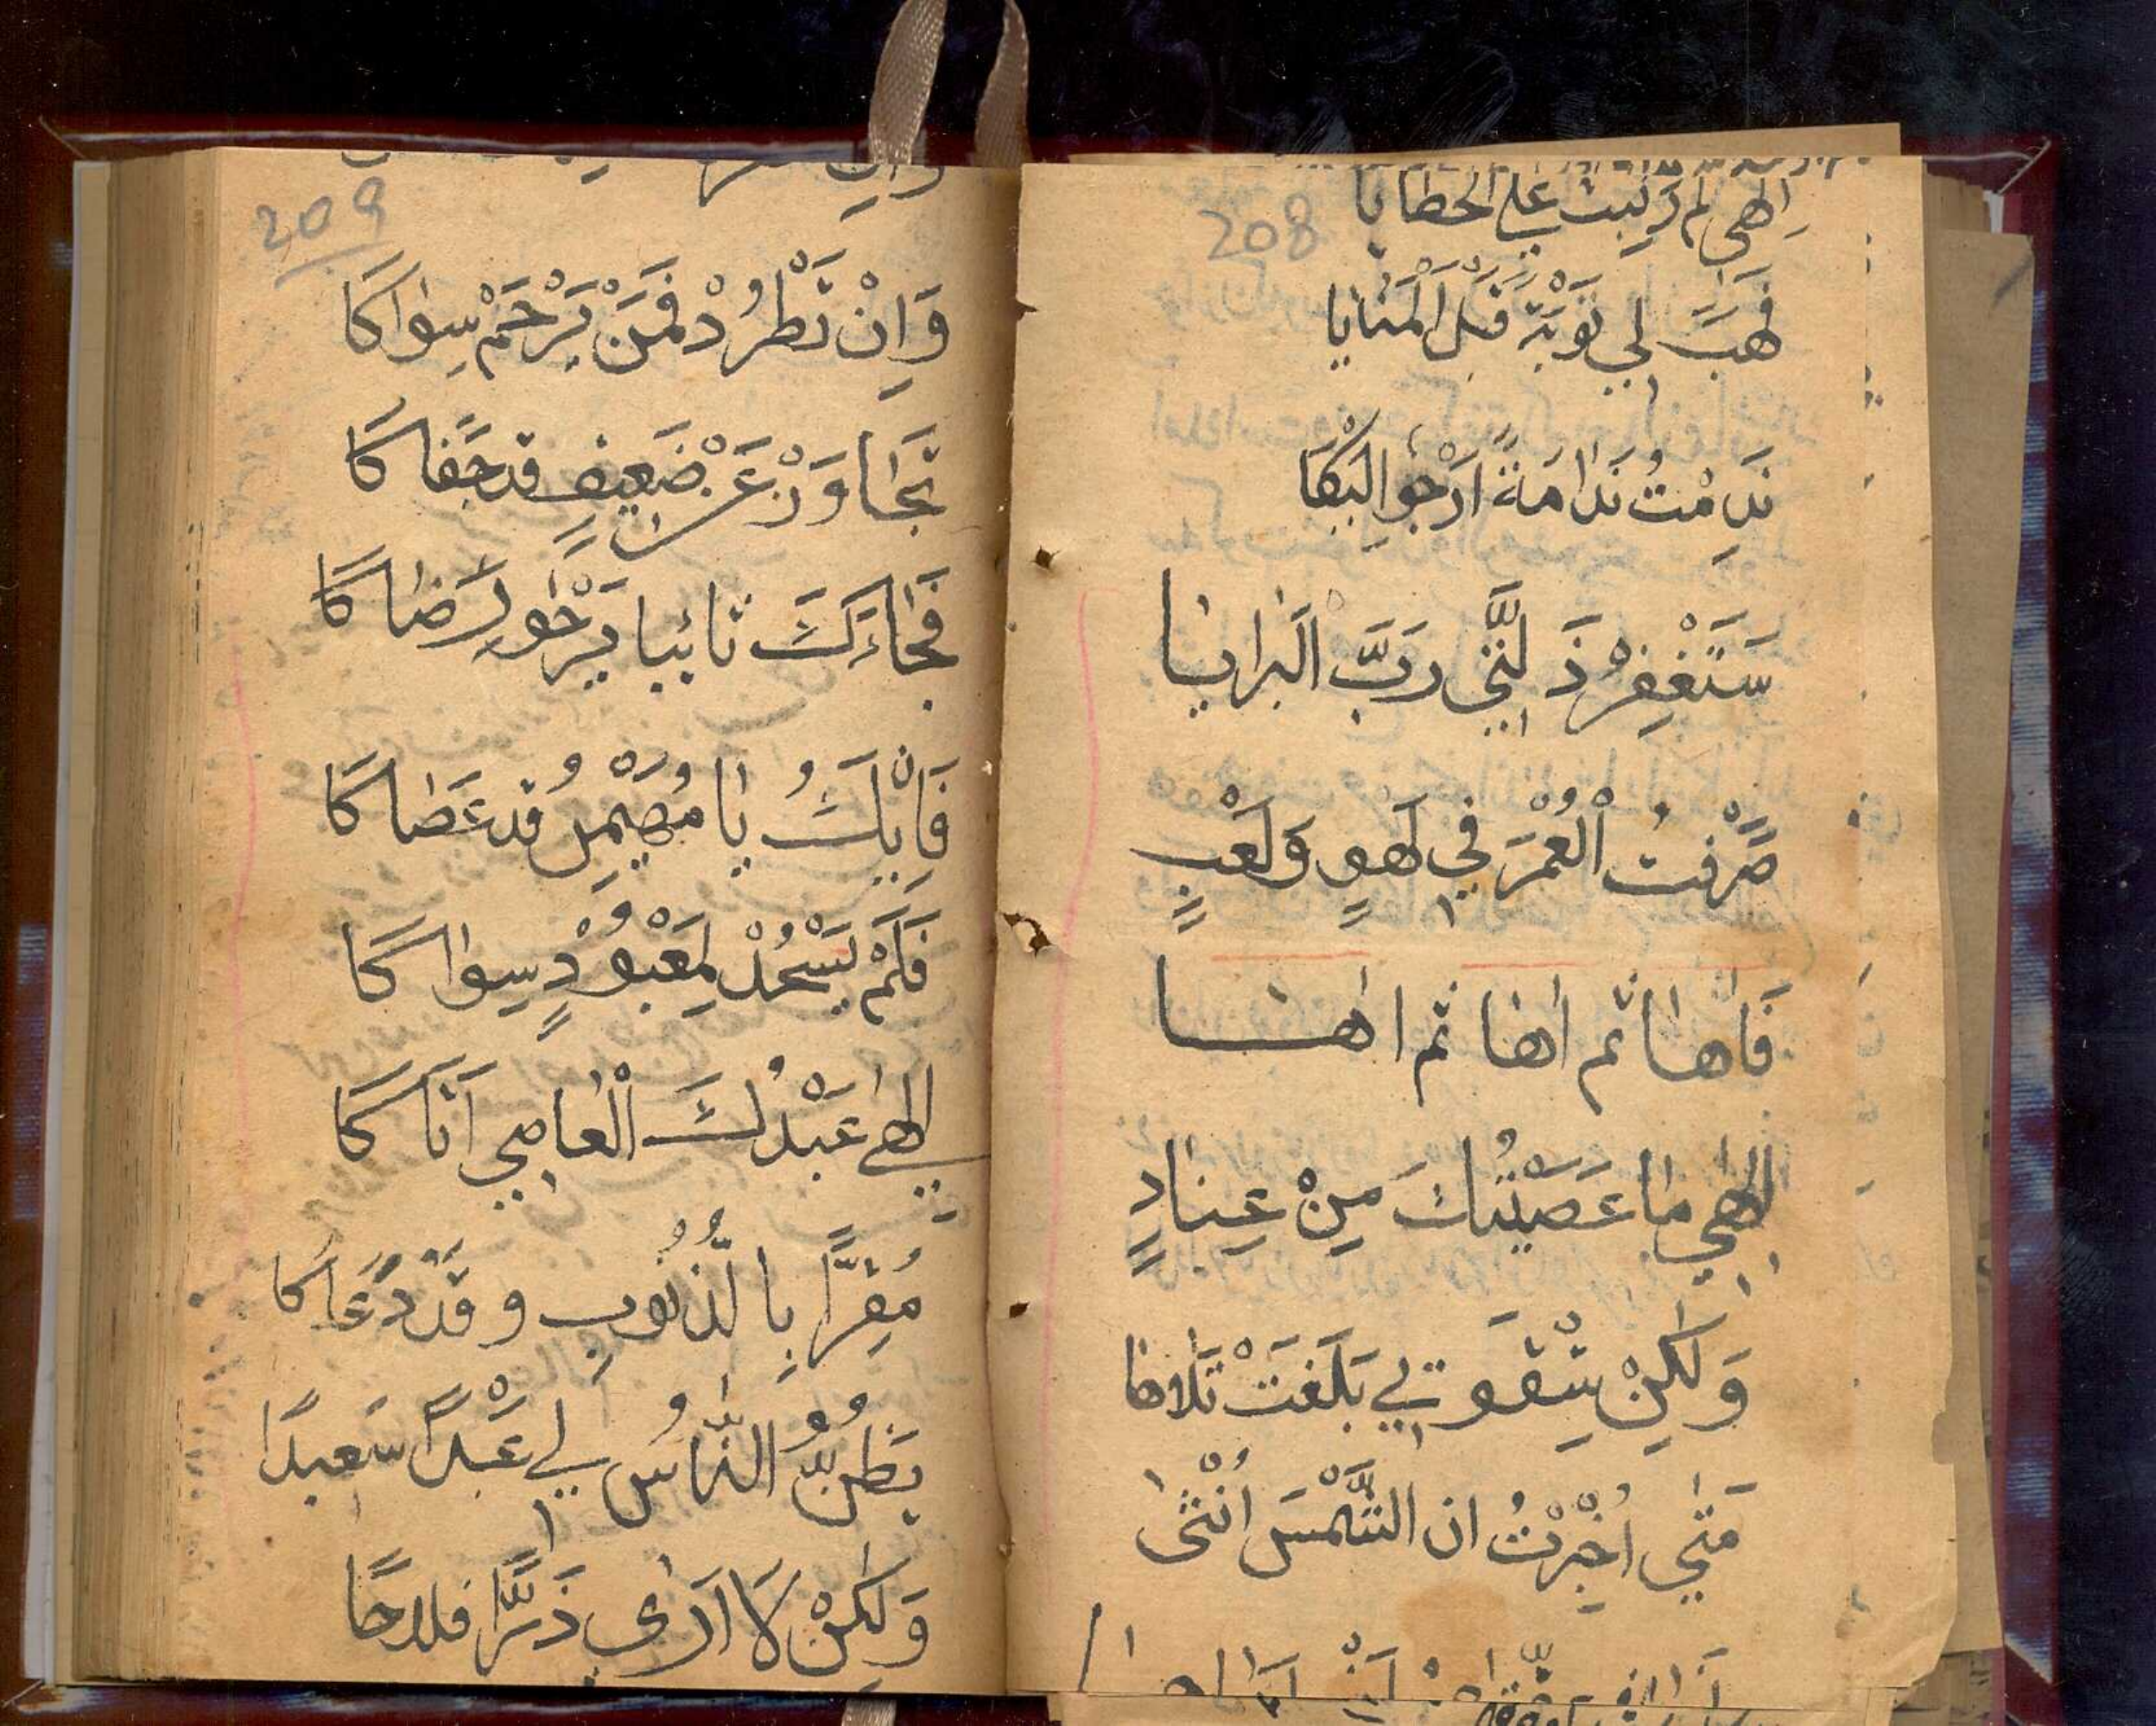 208
اِلٰهِي لم رتبت علي الخطايا
فَهَبَ لِي تَوْبَة قَبْلَ الْمَنايَا
نَدِمْتُ نَدَامَةً اَرْجُو الْبُكَا
سَتَغْفِرْ ذَلَّتِي رَبَّ الْبَرَايٰا
صَرَّفْتُ الْعُمْرَ فِي لَهوٍ وَلَعْبٍ
فَاٰهٰا ثم اٰهٰا ثم اٰهٰا
اِلٰهِي مٰا عَصَيْتُكَ مِنْ عِنٰادٍ
وَلٰكِنْ شِقْوَتِي بَلَغَتْ تَلَاهٰا
مَتٰي اُخْبِرْتُ ان الشَّمْسَ اُنْثٰى
209
وَاِنْ تَطْرُدْ فَمَنْ يَرْحَمْ سِوٰاكَا
تَجٰاوَزْ عَنْ ضَعِيفٍ قد جَفٰاكَا
فَجٰاءَكَ تائبا يَرْجُو رِضٰاكَا
فَاِنْ يَكُ يٰا مُهَيْمِنُ قد عَصٰاكَا
فَلَمْ يَسْجُدْ لِمَعْبُوْدٍ سِوٰاكَا
اِلٰهِي عَبْدُكَ الْعٰاصِي اَتَاكَا
مُقِرًّا بِالذُّنُوبِ وقَدْ دَعَاكَا
يَظُنُّ النّٰاسُ لِي عَبْدًا سَعِيدًا
وَلٰكِنْ لَا اَرٰي ذَرًّا فلاحًا